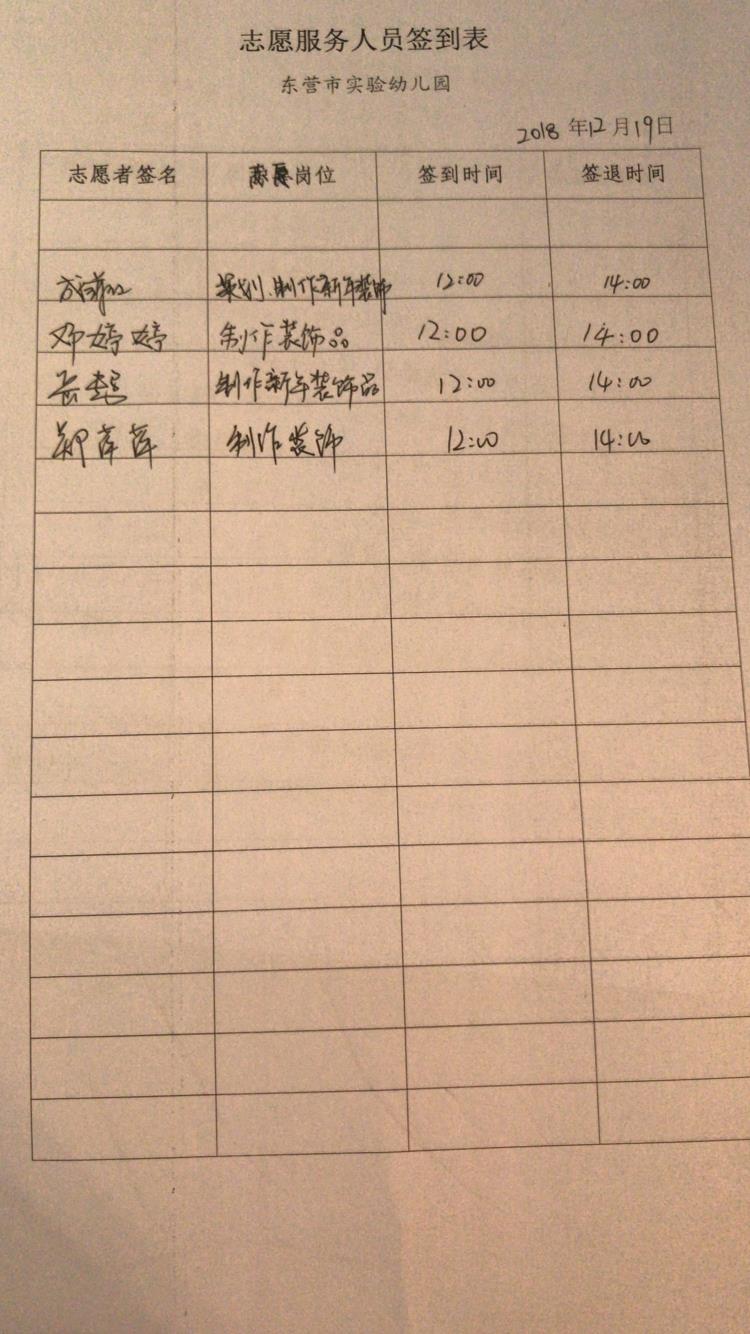 志愿服务人员签到表
东营市实验幼儿园
2018年12月19日
志愿者签名 志愿岗位 签到时间 签退时间
策划、制作新年装饰 12:00 14:00
邓婷婷 制作装饰品 12:00 14:00
制作新年装饰品 12:00 14:00
郑萍萍 制作装饰 12:00 14:00